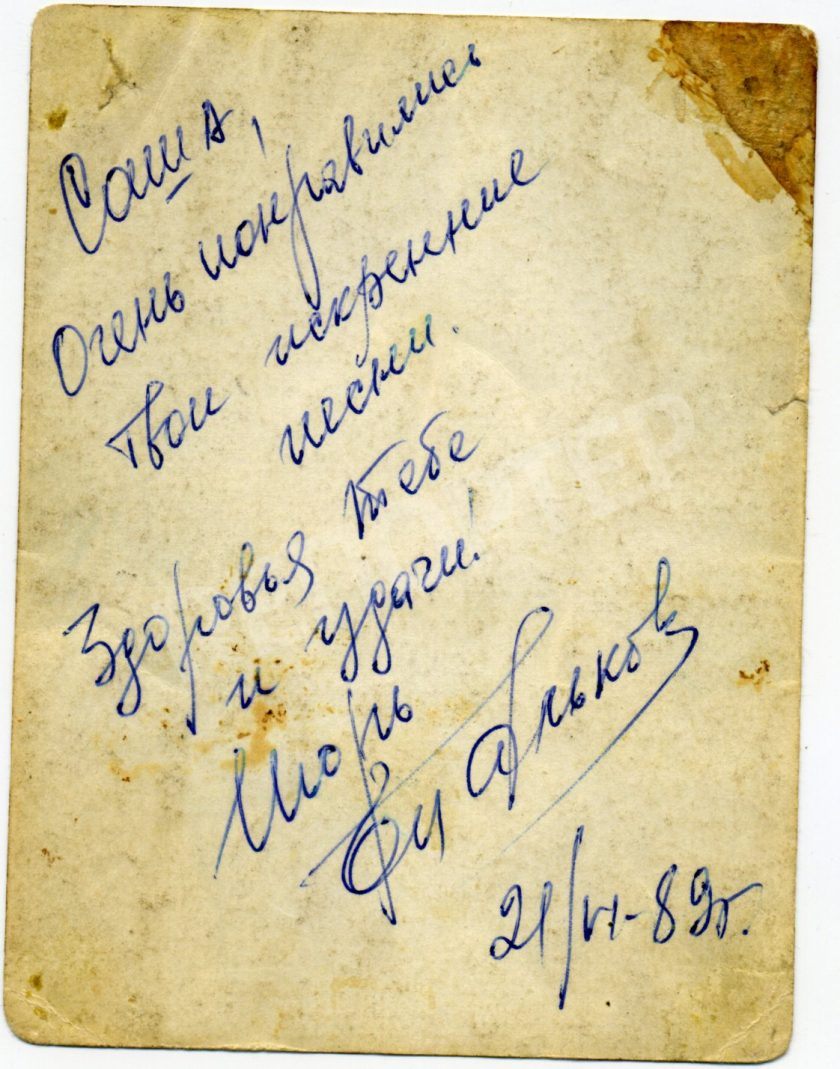 Саша,
Очень понравились
твои искренние
песни.
Здоровья тебе
и удачи!
Игорь
Тальков
21/VI-89г.